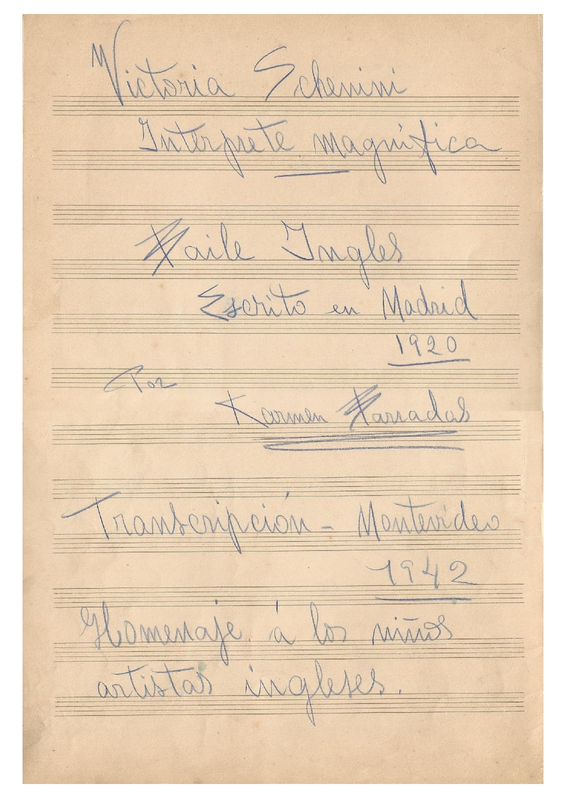 Victoria Schenini
Intérprete magnífica
Baile Ingles
Escrito en Madrid
1920
Por
Karmen Barradas
Transcripción - Montevideo
1942
Homenaje á los niños
artistas ingleses.